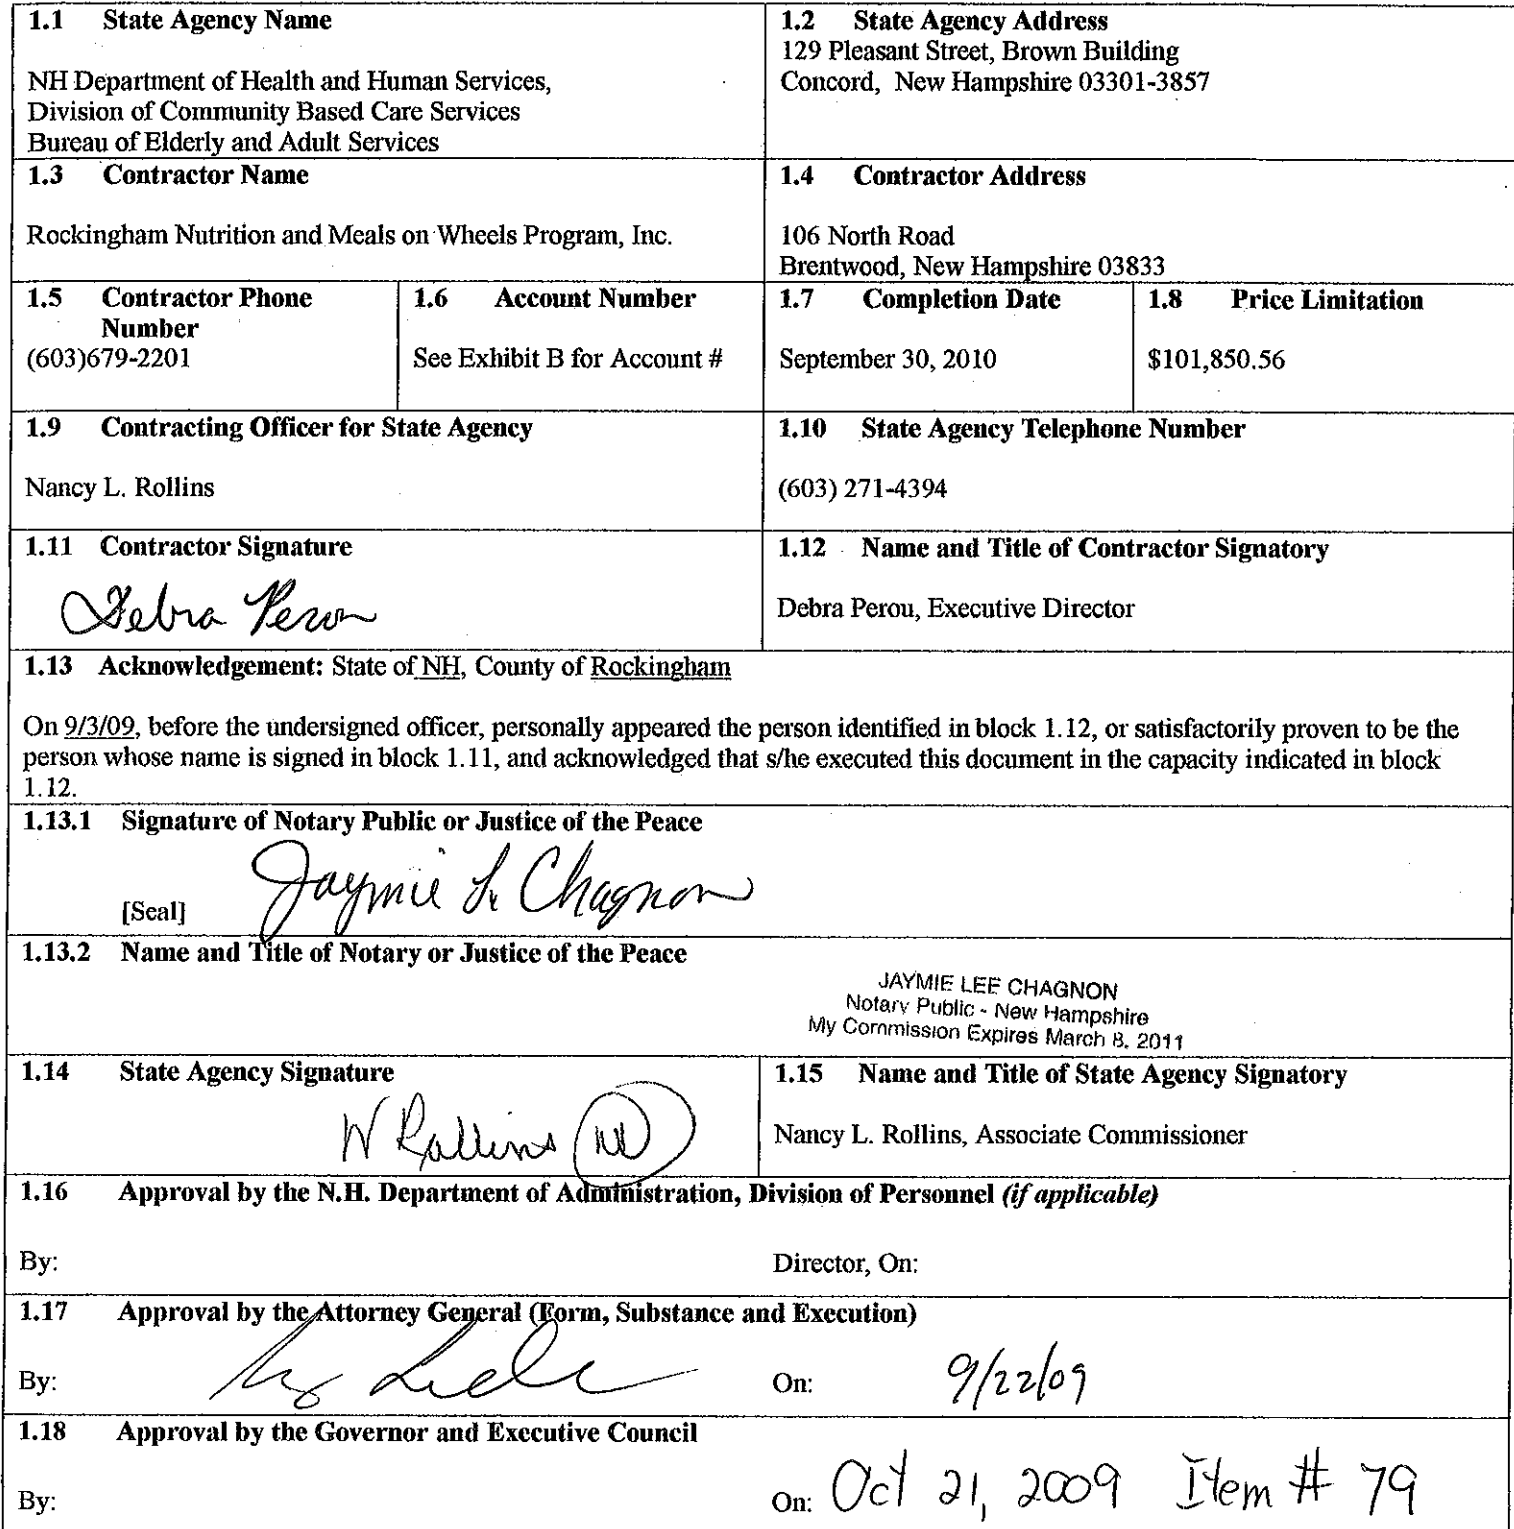 1.1 State Agency Name
NH Department of Health and Human Services,
Division of Community Based Care Services
Bureau of Elderly and Adult Services
1.2 State Agency Address
129 Pleasant Street, Brown Building
Concord, New Hampshire 03301-3857
1.3 Contractor Name
Rockingham Nutrition and Meals on Wheels Program, Inc.
1.4 Contractor Address
106 North Road
Brentwood, New Hampshire 03833
1.5 Contractor Phone
Number
(603)679-2201
1.6 Account Number
See Exhibit B for Account #
1.7 Completion Date
September 30, 2010
1.8 Price Limitation
$101,850.56
1.9 Contracting Officer for State Agency
Nancy L. Rollins
1.10 State Agency Telephone Number
(603) 271-4394
1.11 Contractor Signature
Debra Perou
1.12 Name and Title of Contractor Signatory
Debra Perou, Executive Director
1.13 Acknowledgement: State of NH, County of Rockingham
On 9/3/09, before the undersigned officer, personally appeared the person identified in block 1.12, or satisfactorily proven to be the
person whose name is signed in block 1.11, and acknowledged that s/he executed this document in the capacity indicated in block
1.12.
1.13.1 Signature of Notary Public or Justice of the Peace
Jaymie L Chagnon
[Seal]
1.13.2 Name and Title of Notary or Justice of the Peace
JAYMIE LEE CHAGNON
Notary Public - New Hampshire
My Commission Expires March 8, 2011
1.14 State Agency Signature
N Rollins
1.15 Name and Title of State Agency Signatory
Nancy L. Rollins, Associate Commissioner
1.16 Approval by the N.H. Department of Administration, Division of Personnel (if applicable)
By:
Director, On:
1.17 Approval by the Attorney General (Form, Substance and Execution)
By:
On: 9/22/09
1.18 Approval by the Governor and Executive Council
By:
On: Oct 21, 2009 Item # 79